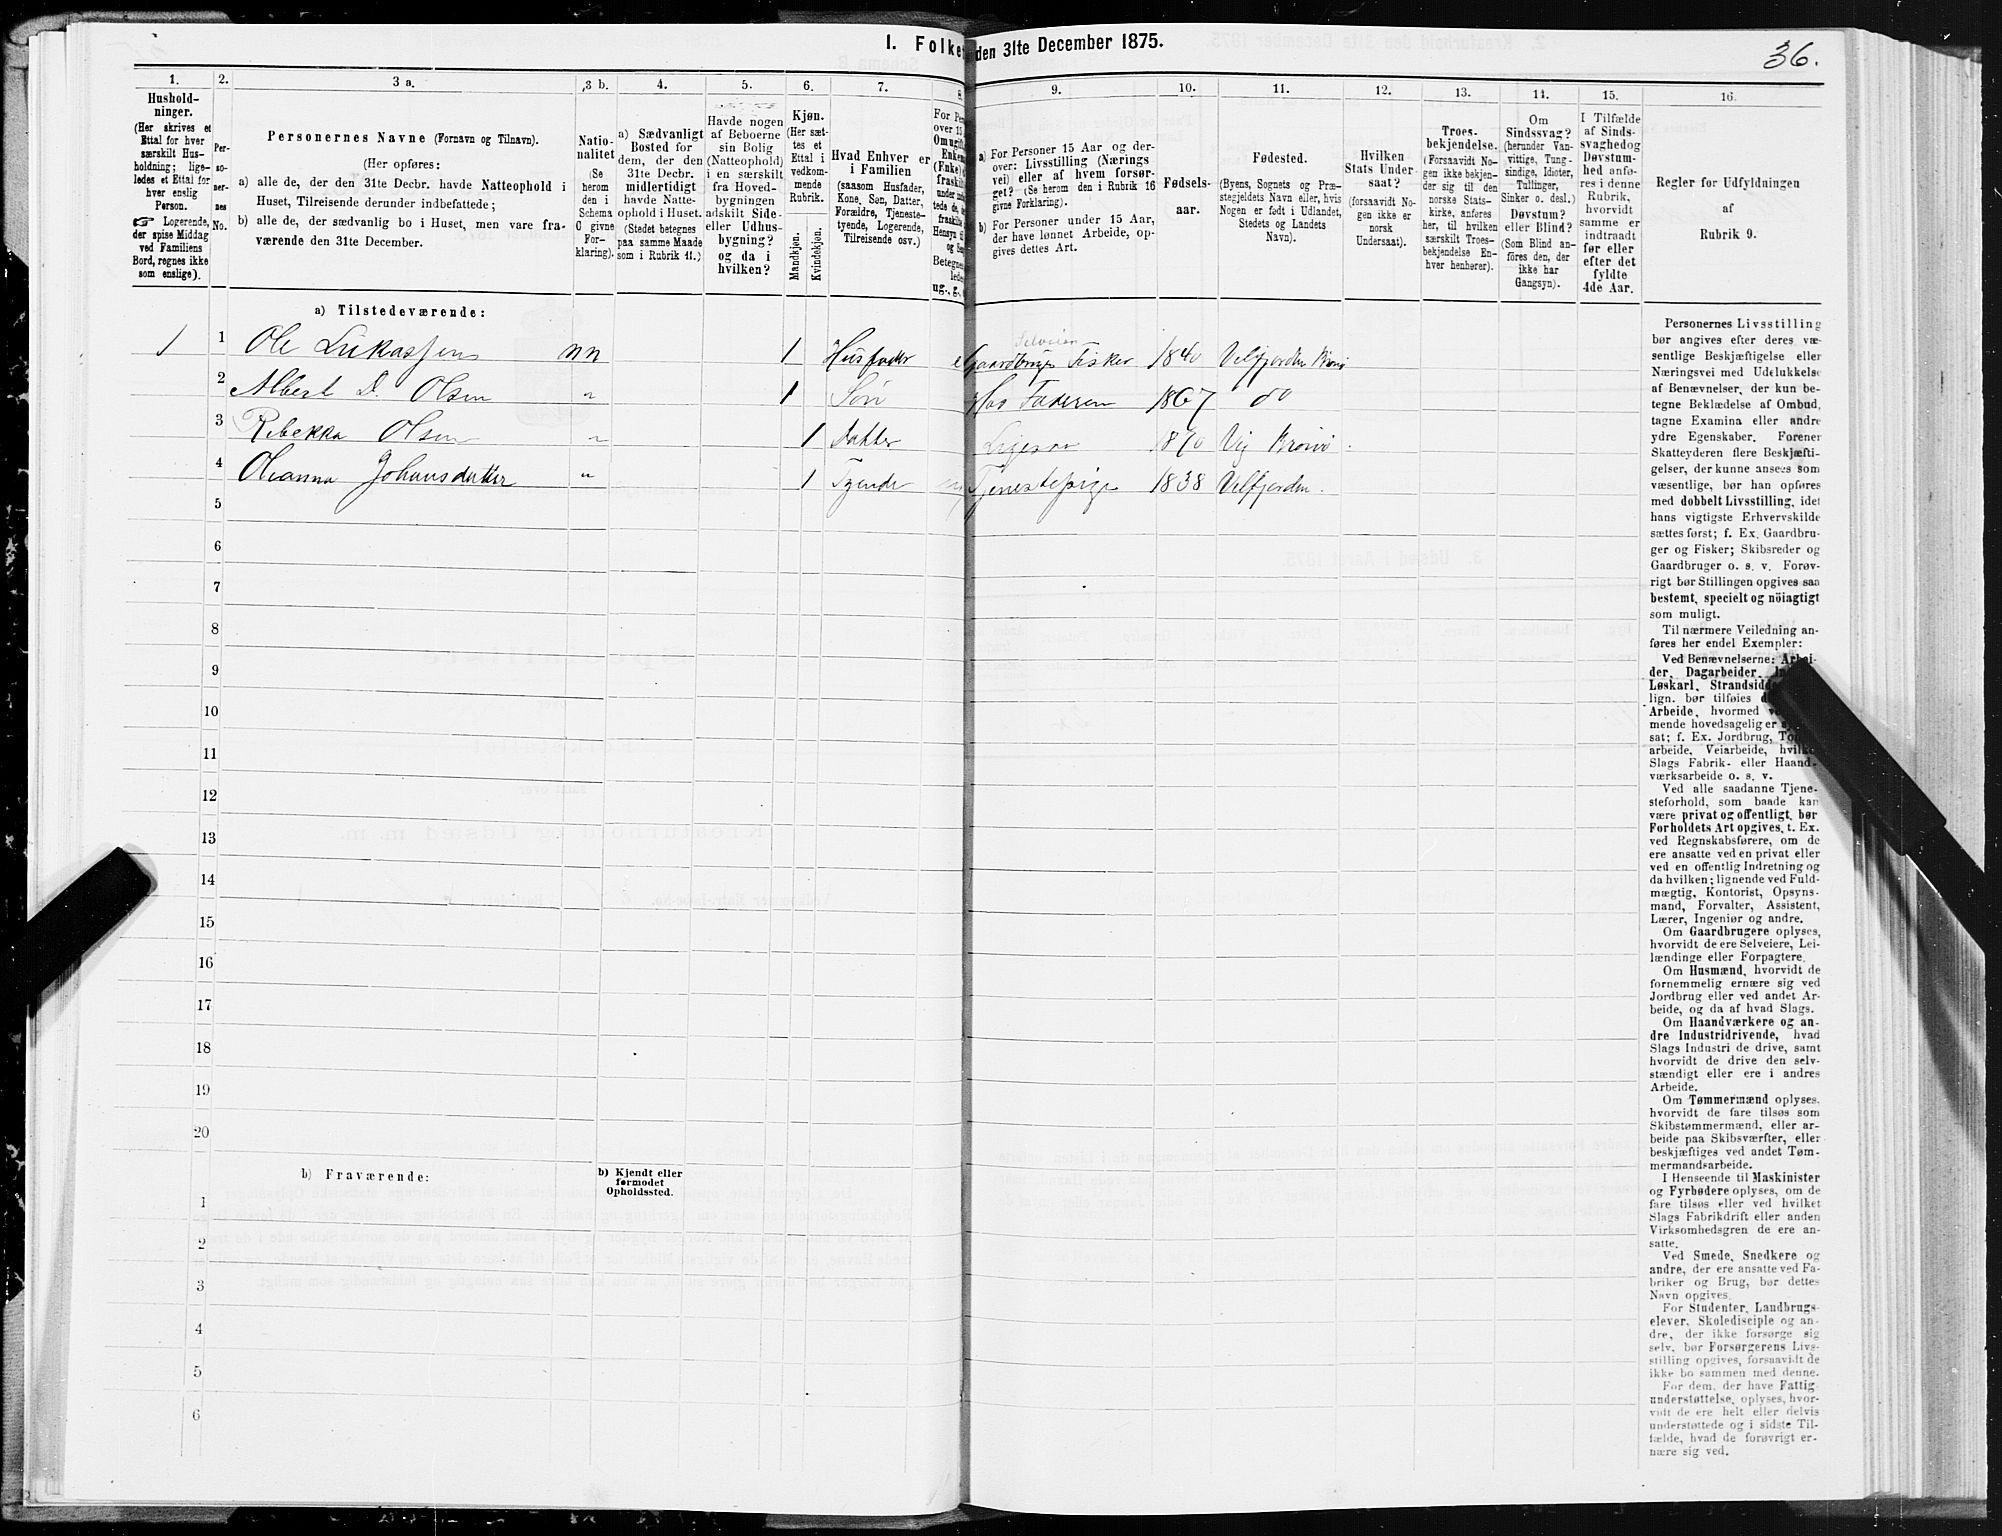 I. Folke
den 31te December 1875.
36.
1.
2.
3 a.
3 b.
4.
5.
6.
7.
8.
9.
10.
11.
12.
13.
14.
15.
16.
Hushold-
ninger.
(Her skrives et
Ettal for hver
særskilt Hus-
holdning; lige-
ledes et Ettal for
hver enslig
Person.
☞ Logerende,
der spise Middag
ved Familiens
Bord, regnes ikke
som enslige).
Per-
so-
ner-
nes
No.
Personernes Navne (Fornavn og Tilnavn).
(Her opføres:
a) alle de, der den 31te Decbr. havde Natteophold i
Huset, Tilreisende derunder indbefattede;
b) alle de, der sædvanlig bo i Huset, men vare fra-
værende den 31te December.
Natio-
nalitet
(Se
herom
den i
Schema
C givne
For-
klaring).
a) Sædvanligt
Bosted for
dem, der den
31te Decbr.
midlertidigt
havde Natte-
ophold i Huset.
(Stedet betegnes
paa samme Maade
som i Rubrik 11.)
Havde nogen
af Beboerne
sin Bolig
(Natteophold)
i en særskilt
fra Hoved-
bygningen
adskilt Side-
eller Udhus-
bygning?
og da i
hvilken?
Kjøn.
(Her sæt-
tes et
Ettal i
vedkom-
mende
Rubrik.
Mandkjøn.
Kvindekjøn.
Hvad Enhver er
i Familien
(saasom Husfader,
Kone, Søn, Datter,
Forældre, Tjeneste-
tyende, Logerende,
Tilreisende osv.)
a) For Personer 15 Aar og der-
over: Livsstilling (Nærings
vei) eller af hvem forsør-
get? (Se herom den i Rubrik 16
givne Forklaring).
b) For Personer under 15 Aar,
der have lønnet Arbeide, op-
gives dettes Art.
Fødsels-
aar.
Fødested.
(Byens, Sognets og Præ-
stegjeldets Navn eller, hvis
Nogen er født i Udlandet,
Stedets og Landets
Navn).
Hvilken
Stats Under-
saat?
(forsaavidt No-
gen ikke er
norsk
Undersaat).
Troes-
bekjendelse.
(Forsaavidt No-
gen ikke bekjen-
der sig til den
norske Stats-
kirke, anføres
her, til hvilken
særskilt Troes-
bekjendelse En-
hver henhører).
Om
Sindssvag?
(herunder Van-
vittige, Tung-
sindige, Idioter,
Tullinger,
Sinker o. desl.)
Døvstum?
eller Blind?
(Som Blind an-
föres den, der
ikke har
Gangsyn).
I Tilfælde
af Sinds-
svaghedog
Døvstum-
hed anfø-
res i denne
Rubrik,
hvorvidt
samme er
indtraadt
før eller
efter det
fyldte
4de Aar.
Regler for Udfyldningen
af
Rubrik 9.
a) Tilstedeværende:
Selveier
1 1 Ole Lukassen nn 1 Husfader Gaardbruger Fisker 1840 Velfjorden
2 Albert D. Olsen " 1 Søn Hos Faderen 1867 do
3 Rebekka Olsen " 1 Datter Ligesaa 1870
4 Oleanna Johansdatter " 1 Tyende Tjenestepige 1838 Velfjorden.
5
6
7
8
9
10
11
12
13
14
15
16
17
18
19
20
b) Fraværende:
b) Kjendt eller
formodet
Opholdssted.
1
2
3
4
5
6
Personernes Livsstilling
bør angives efter deres væ-
sentlige Beskjæftigelse eller
Næringsvei med Udelukkelse
af Benævnelser, der kun be-
tegne Beklædelse af Ombud,
tagne Examina eller andre
ydre Egenskaber. Forener
Skatteyderen flere Beskjæfti-
gelser, der kunne ansees som
væsentlige, bør han opføres
med dobbelt Livsstilling, idet
hans vigtigste Erhvervskilde
sættes først; f. Ex. Gaardbru-
ger og Fisker; Skibsreder og
Gaardbruger o. s. v. Forøv-
rigt bør Stillingen opgives saa
bestemt, specielt og nöiagtigt
som muligt.
Til nærmere Veiledning an-
føres her endel Exempler:
Ved Benævnelserne: Arbei-
der, Dagarbeider,
Løskarl, Strandsidder
lign. bør tilføies
Arbeide, hvormed
mende hovedsagelig er
sat; f. Ex. Jordbrug,
arbeide, Veiarbeide, hvilket
Slags Fabrik- eller Haand-
værksarbeide o. s. v.
Ved alle saadanne Tjene-
steforhold, som baade kan
være privat og offentligt, bør
Forholdets Art opgives, t. Ex.
ved Regnskabsførere, om de
ere ansatte ved en privat eller
ved en offentlig Indretning og
da hvilken; lignende ved Fuld-
mægtig, Kontorist, Opsyns-
mand, Forvalter, Assistent,
Lærer, Ingeniør og andre.
Om Gaardbrugere oplyses,
hvorvidt de ere Selveiere, Lei-
lændinge eller Forpagtere.
Om Husmænd, hvorvidt de
fornemmelig ernære sig ved
Jordbrug eller ved andet Ar-
beide, og da af hvad Slags.
Om Haandværkere og an-
dre Industridrivende, hvad
Slags Industri de drive, samt
hvorvidt de drive den selv-
stændigt eller ere i andres
Arbeide.
Om Tømmermænd oplyses,
hvorvidt de fare tilsøs som
Skibstømmermænd, eller ar-
beide paa Skibsværfter, eller
beskjæftiges ved andet Tøm-
mermandsarbeide.
I Henseende til Maskinister
og Fyrbødere oplyses, om de
fare tilsøs eller ved hvilket
Slags Fabrikdrift eller anden
Virksomhedsgren de ere an-
satte.
Ved Smede, Snedkere og
andre, der ere ansatte ved Fa-
briker og Brug, bør dettes
Navn opgives.
For Studenter, Landbrugs-
elever, Skoledisciple og an-
dre, der ikke forsørge sig
selv, bør Forsørgerens Livs-
stilling opgives, forsaavidt de
ikke bo sammen med denne.
For dem, der have Fattig-
understøttelse, oplyses, hvor-
vidt de ere helt eller delvis
understøttede og i sidste Til-
fælde, hvad de forøvrigt er-
nære sig ved.